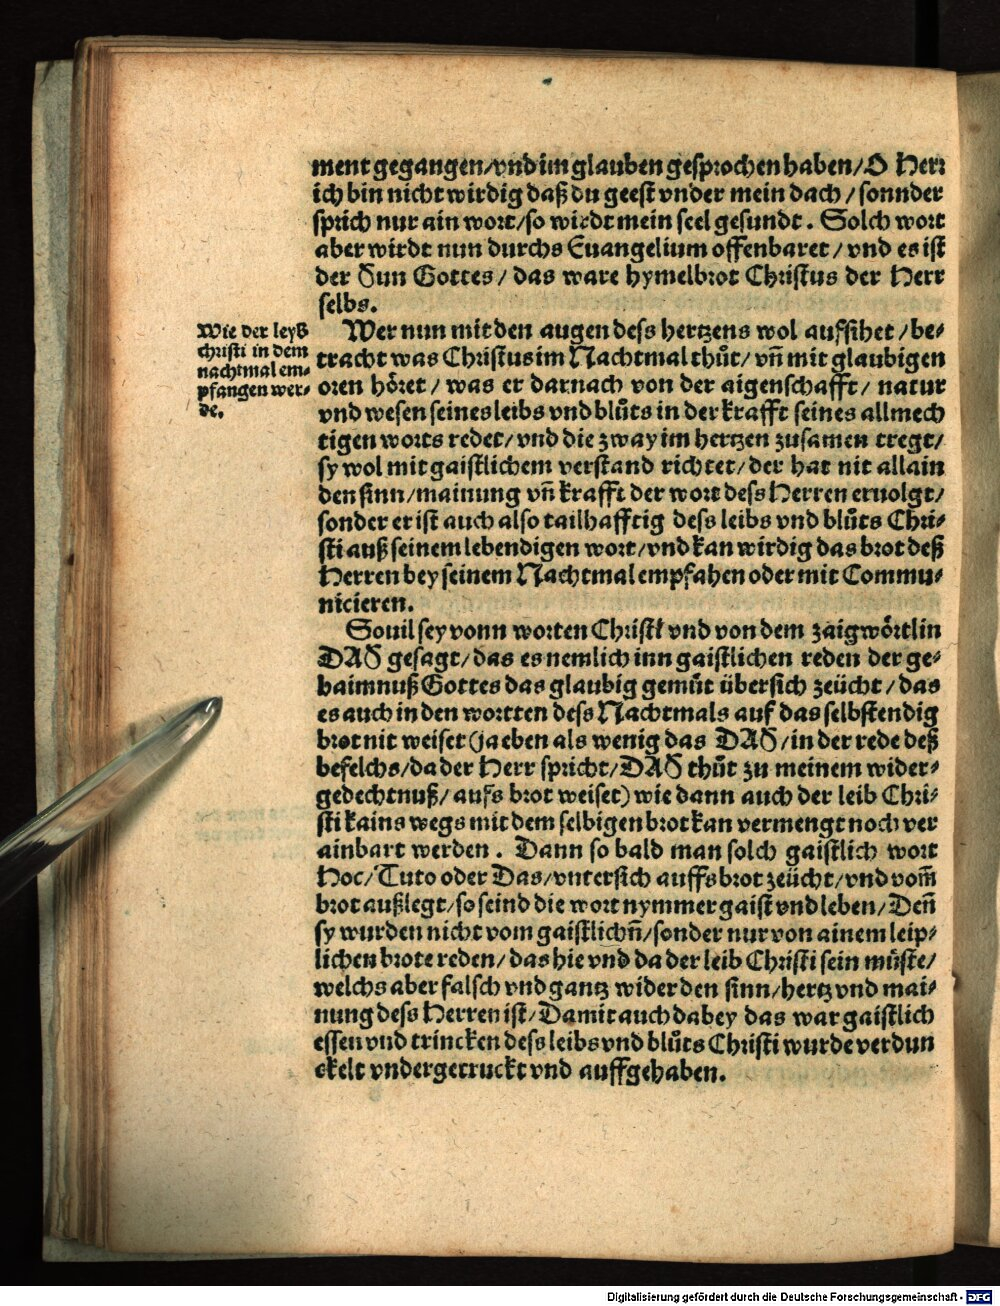 ment gegangen/vnd im glauben gesprochen haben/O Herr
ich bin nicht wirdig daß du geest vnder mein dach/sonnder
sprich nur ain wort/so wirdt mein seel gesundt. Solch wort
aber wirdt nun durchs Euangelium offenbaret/vnd es ist
der Sun Gottes/das ware hymelbrot Christus der Herr
selbs.
Wie der leyb
christi in dem
nachtmal em-
pfangen wer-
de.
Wer nun mit den augen dess hertzens wol auffsihet/be-
tracht was Christus im Nachtmal thuͦt/vñ mit glaubigen
oren hoͤret/was er darnach von der aigenschafft/natur
vnd wesen seines leibs vnd bluͦts in der krafft seines allmech
tigen worts redet/vnd die zway im hertzen zusamen tregt/
sy wol mit gaistlichem verstand richtet/der hat nit allain
den sinn/mainung vñ krafft der wort dess Herren eruolgt/
sonder er ist auch also tailhafftig dess leibs vnd bluͦts Chri-
sti auß seinem lebendigen wort/vnd kan wirdig das brot deß
Herren bey seinem Nachtmal empfahen oder mit Commu-
nicieren.
Souil sey vonn worten Christi vnd von dem zaigwoͤrtlin
DAS gesagt/das es nemlich inn gaistlichen reden der ge-
haimnuß Gottes das glaubig gemuͤt übersich zeücht/das
es auch in den wortten dess Nachtmals auf das selbstendig
brot nit weiset (ja eben als wenig das DAS/in der rede deß
befelchs/da der Herr spricht/DAS thuͦt zu meinem wider-
gedechtnuß/aufs brot weiset) wie dann auch der leib Chri-
sti kains wegs mit dem selbigen brot kan vermengt noch ver
ainbart werden. Dann so bald man solch gaistlich wort
Hoc/Tuto oder Das/vntersich auffs brot zeücht/vnd vom̃
brot außlegt/so seind die wort nymmer gaist vnd leben/Deñ
sy wurden nicht vom gaistlichñ/sonder nur von ainem leip-
lichen brote reden/das hie vnd da der leib Christi sein muͤste/
welchs aber falsch vnd gantz wider den sinn/hertz vnd mai-
nung dess Herren ist/Damit auch dabey das war gaistlich
essen vnd trincken dess leibs vnd bluͦts Christi wurde verdun
ckelt vndergetruckt vnd auffgehaben.
Digitalisierung gefördert durch die Deutsche Forschungsgemeinschaft - DFG